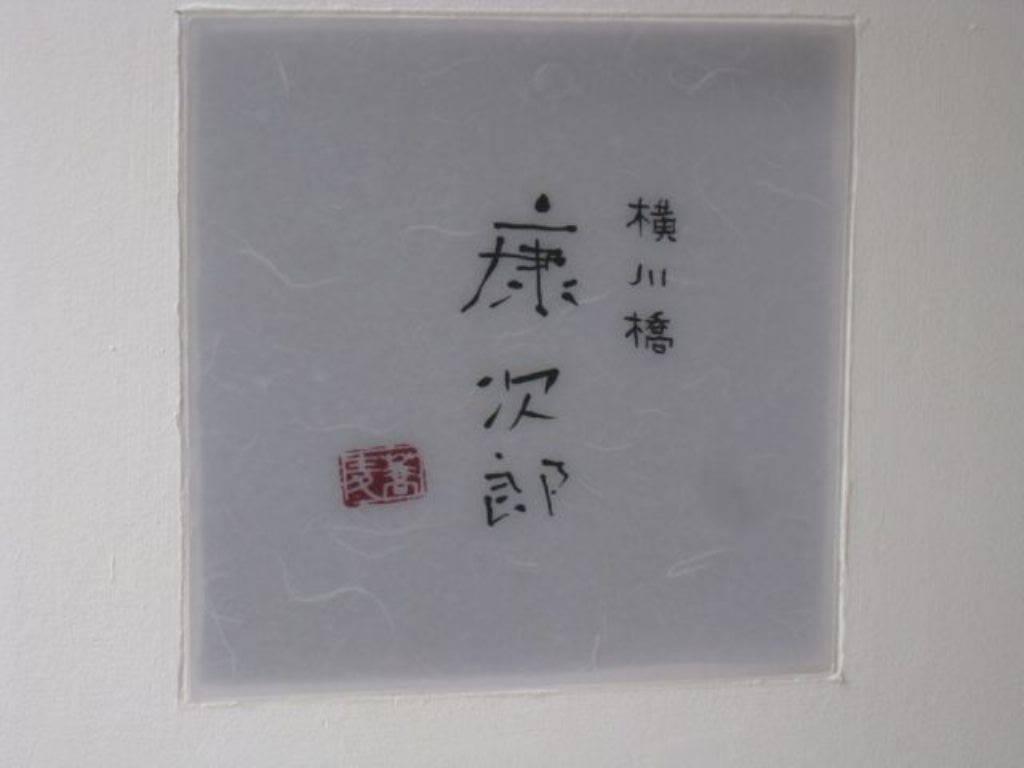 横川橋
康次郎